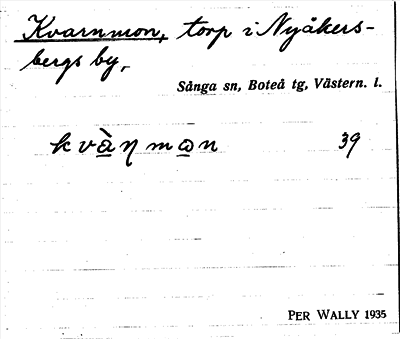 Kvarnmon, torp i Nyåkers-
bergs by,
Sånga sn, Boteå tg, Västern. l.
kvàṇmọn 39
PER WALLY 1935